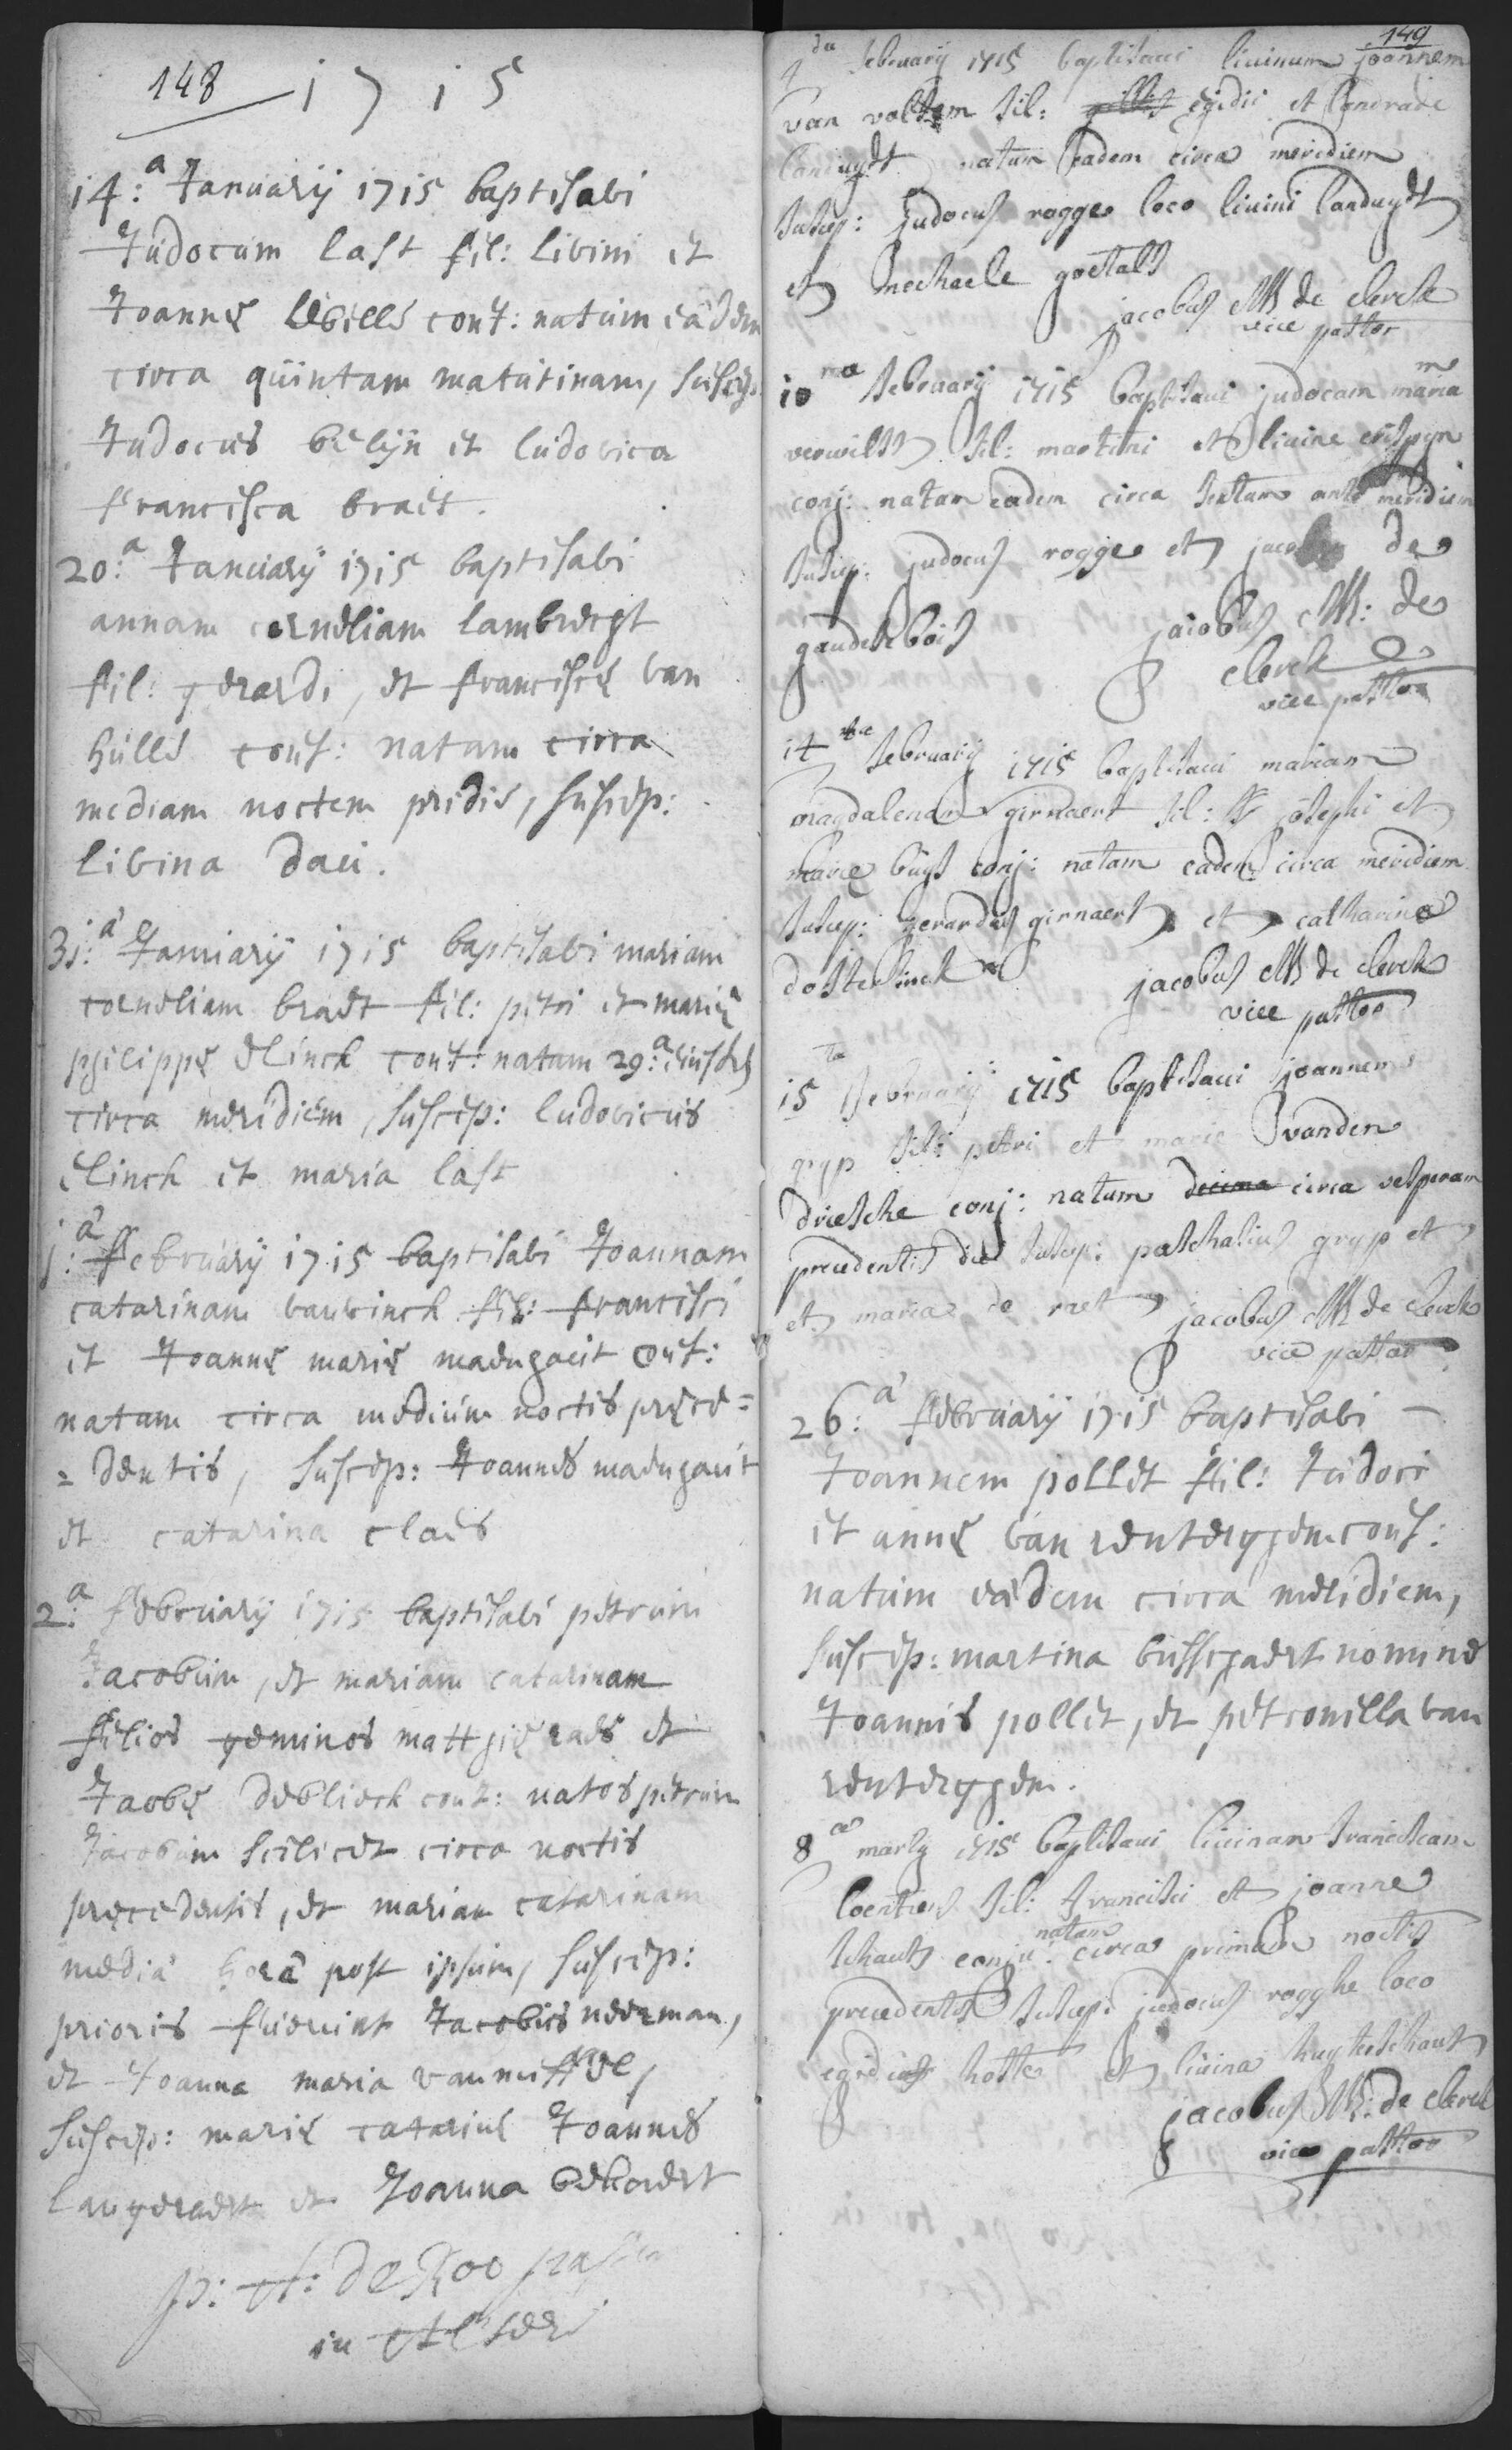 148 1715
14:a Januarij 1715 baptisavi
Judocum last fil: livini et
Joannæ conj: natum eadem
circa quintam matutinam, suscep:
Judocus belijn et ludovica
francisca braet.
20:a Januarij 1715 baptisavi
annam corneliam lambregt
fil: gerardi, et franciscæ van
hulle conj: natam circa
mediam noctem pridie, suscep:
livina daci.
31:a Januarij 1715 baptisavi mariam
corneliam braet fil: petri et mariæ
philippæ elinck conj: natam 29:a eiusdem
circa meridiem, suscep: ludovicus
elinck et maria last
1:a february 1715 baptisavi Joannam
catarinam fil: francisci
et Joannæ mariæ madugaeit conj:
natam circa medium noctis præce=
=dentis, suscep: Joannes madugaeit
et catarina claes
2:a february 1715 baptisavi petrum
Jacobum, et mariam catarinam
filios geminos matthiæ raes et
Jacobæ deblieck conj: natos petrum
Jacobum scilicet circa noctis
præcedentis, et mariam catarinam
media hora post ipsum, suscep:
prioris fuerunt Jacobus neerman,
et Joanna maria vanmuffel,
suscep: mariæ catarinæ Joannes
langeraert et Joanna
p: A: De Roo pastor
in
149
february 1715 baptisavi livinum joannem
van valtem fil: gillis egidii et landrade
landuydt natum eadem circa meridiem
suscep: judocus rogge loco livini landuydt
et mechaele goetals
jacobus M de clerck
vice pastor
10ma february 1715 baptisavi judocam maria m
verwilst fil: martini et livine crispyn
conj: natam eadem circa sextam ante meridiem
suscep: judocus rogge et jacoba de
gaudekbois jacobus M: de
clerck
vice pastor
14ta february 1715 baptisavi mariam
magdalenam girnaert fil: josephi et
marie buys conj: natam eadem circa meridiem
suscep: gerardus girnaert et catharina
dosterlinck jacobus M de clerck
vice pastor
15ta february 1715 baptisavi joannem
gryp fil: petri et marie vanden
driesche conj: natum decima circa vesperam
precedentis die suscep: paschasius gryp et
et maria de raet jacobus M de clerck
vice pastor
26:a february 1715 baptisavi
Joannem pollet fil: Judoci
et annæ van renterghem conj:
natum eadem circa meridiem,
suscep: martina busschaert nomine
Joannis pollet, et petronilla van
renterghem.
8a marty 1715 baptisavi livinam franciscam
loentiers fil: francisci et joanne
schauts conju: natam circa primam noctis
precedentis suscep: judocus rogghe loco
egidius hoste et livina huyteschaut
jacobus M: de clerck
vice pastor